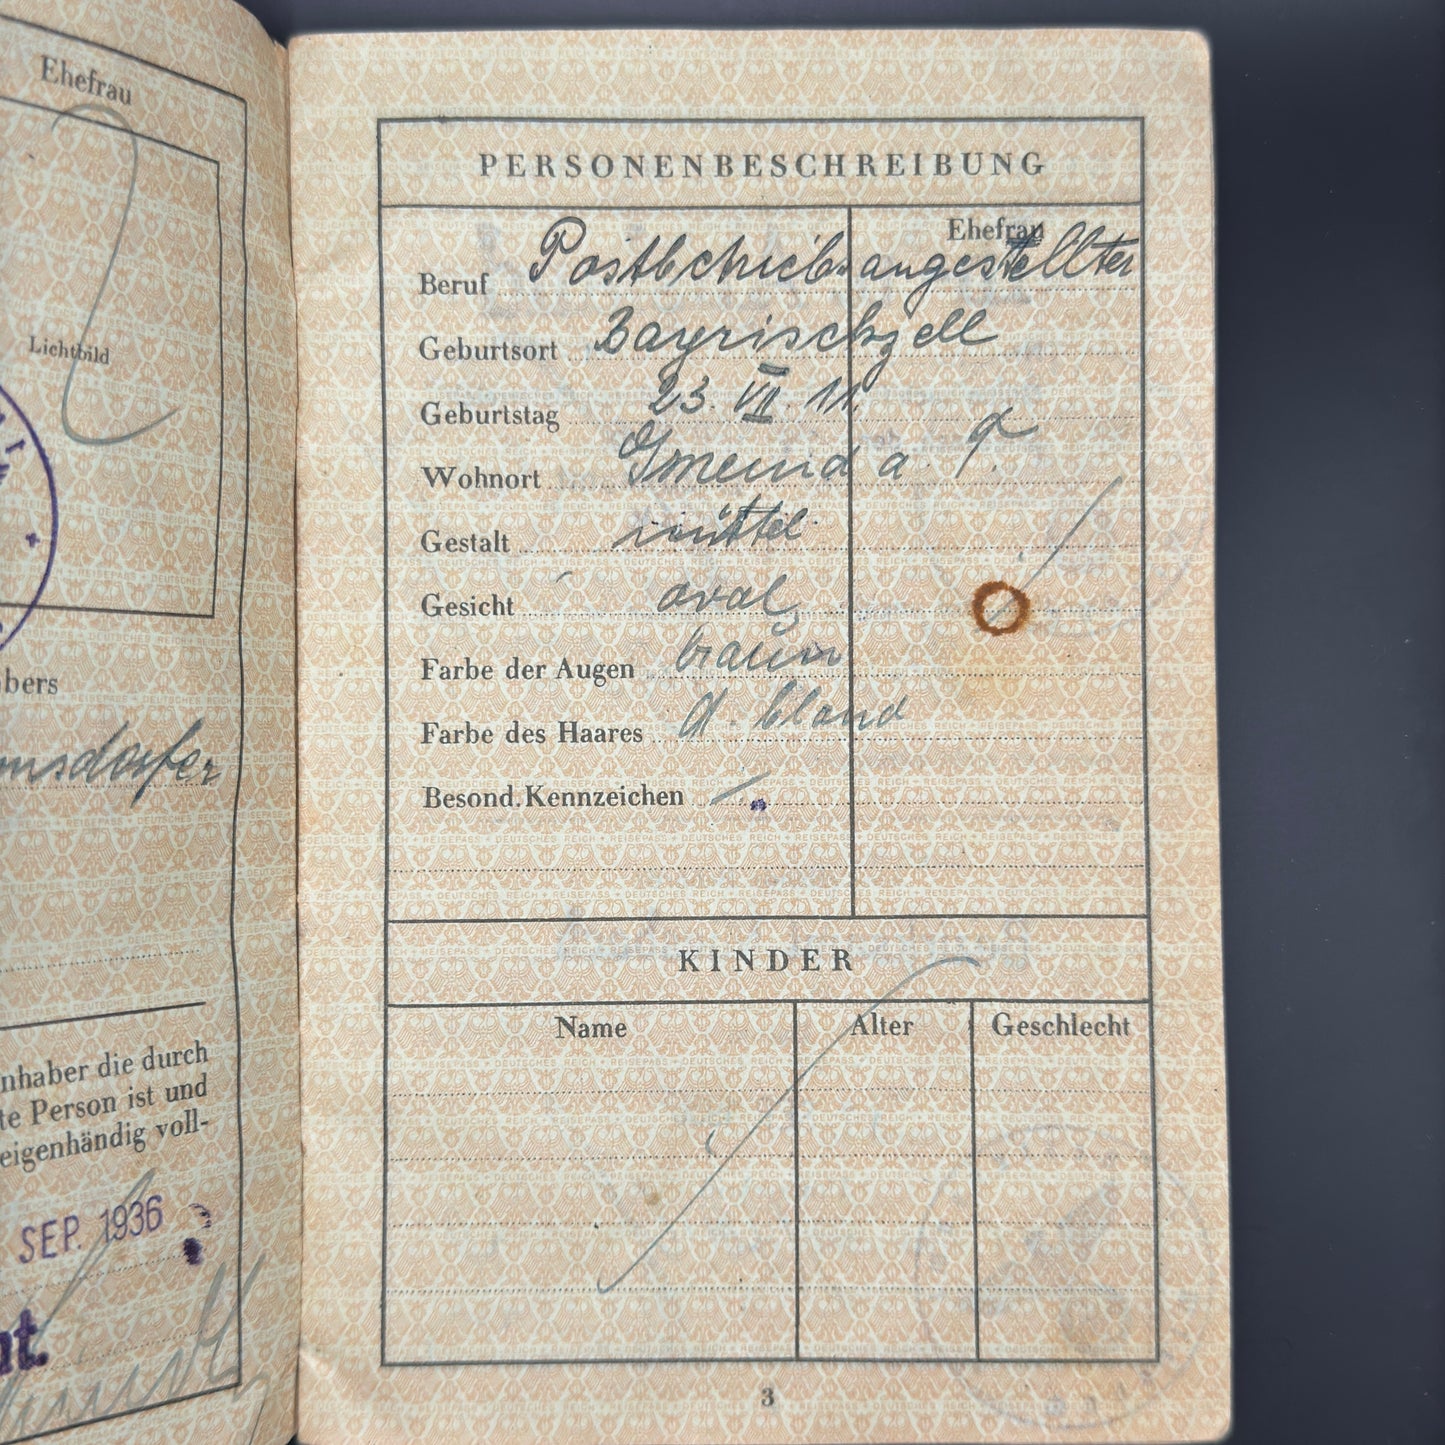 Ehefrau
Lichtbild
bers
nsdorfer
nhaber die durch
te Person ist und
eigenhändig voll-
SEP. 1936
nt.
PERSONENBESCHREIBUNG
Ehefrau
Beruf Postbetriebsangestellter
Geburtsort Bayrischzell
Geburtstag 23. VII. 11.
Wohnort Gmund a.
Gestalt mittel
Gesicht oval
Farbe der Augen braun
Farbe des Haares d. blond
Besond. Kennzeichen
KINDER
Name Alter Geschlecht
3